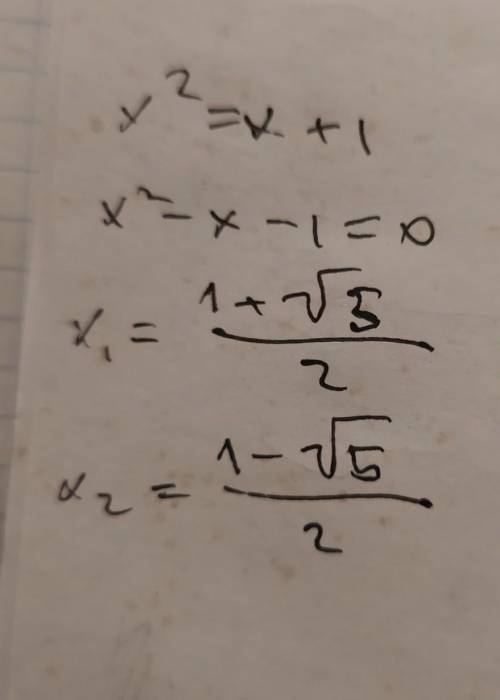 x² = x + 1
x² - x - 1 = 0
x₁ = (1 + √5) / 2
x₂ = (1 - √5) / 2